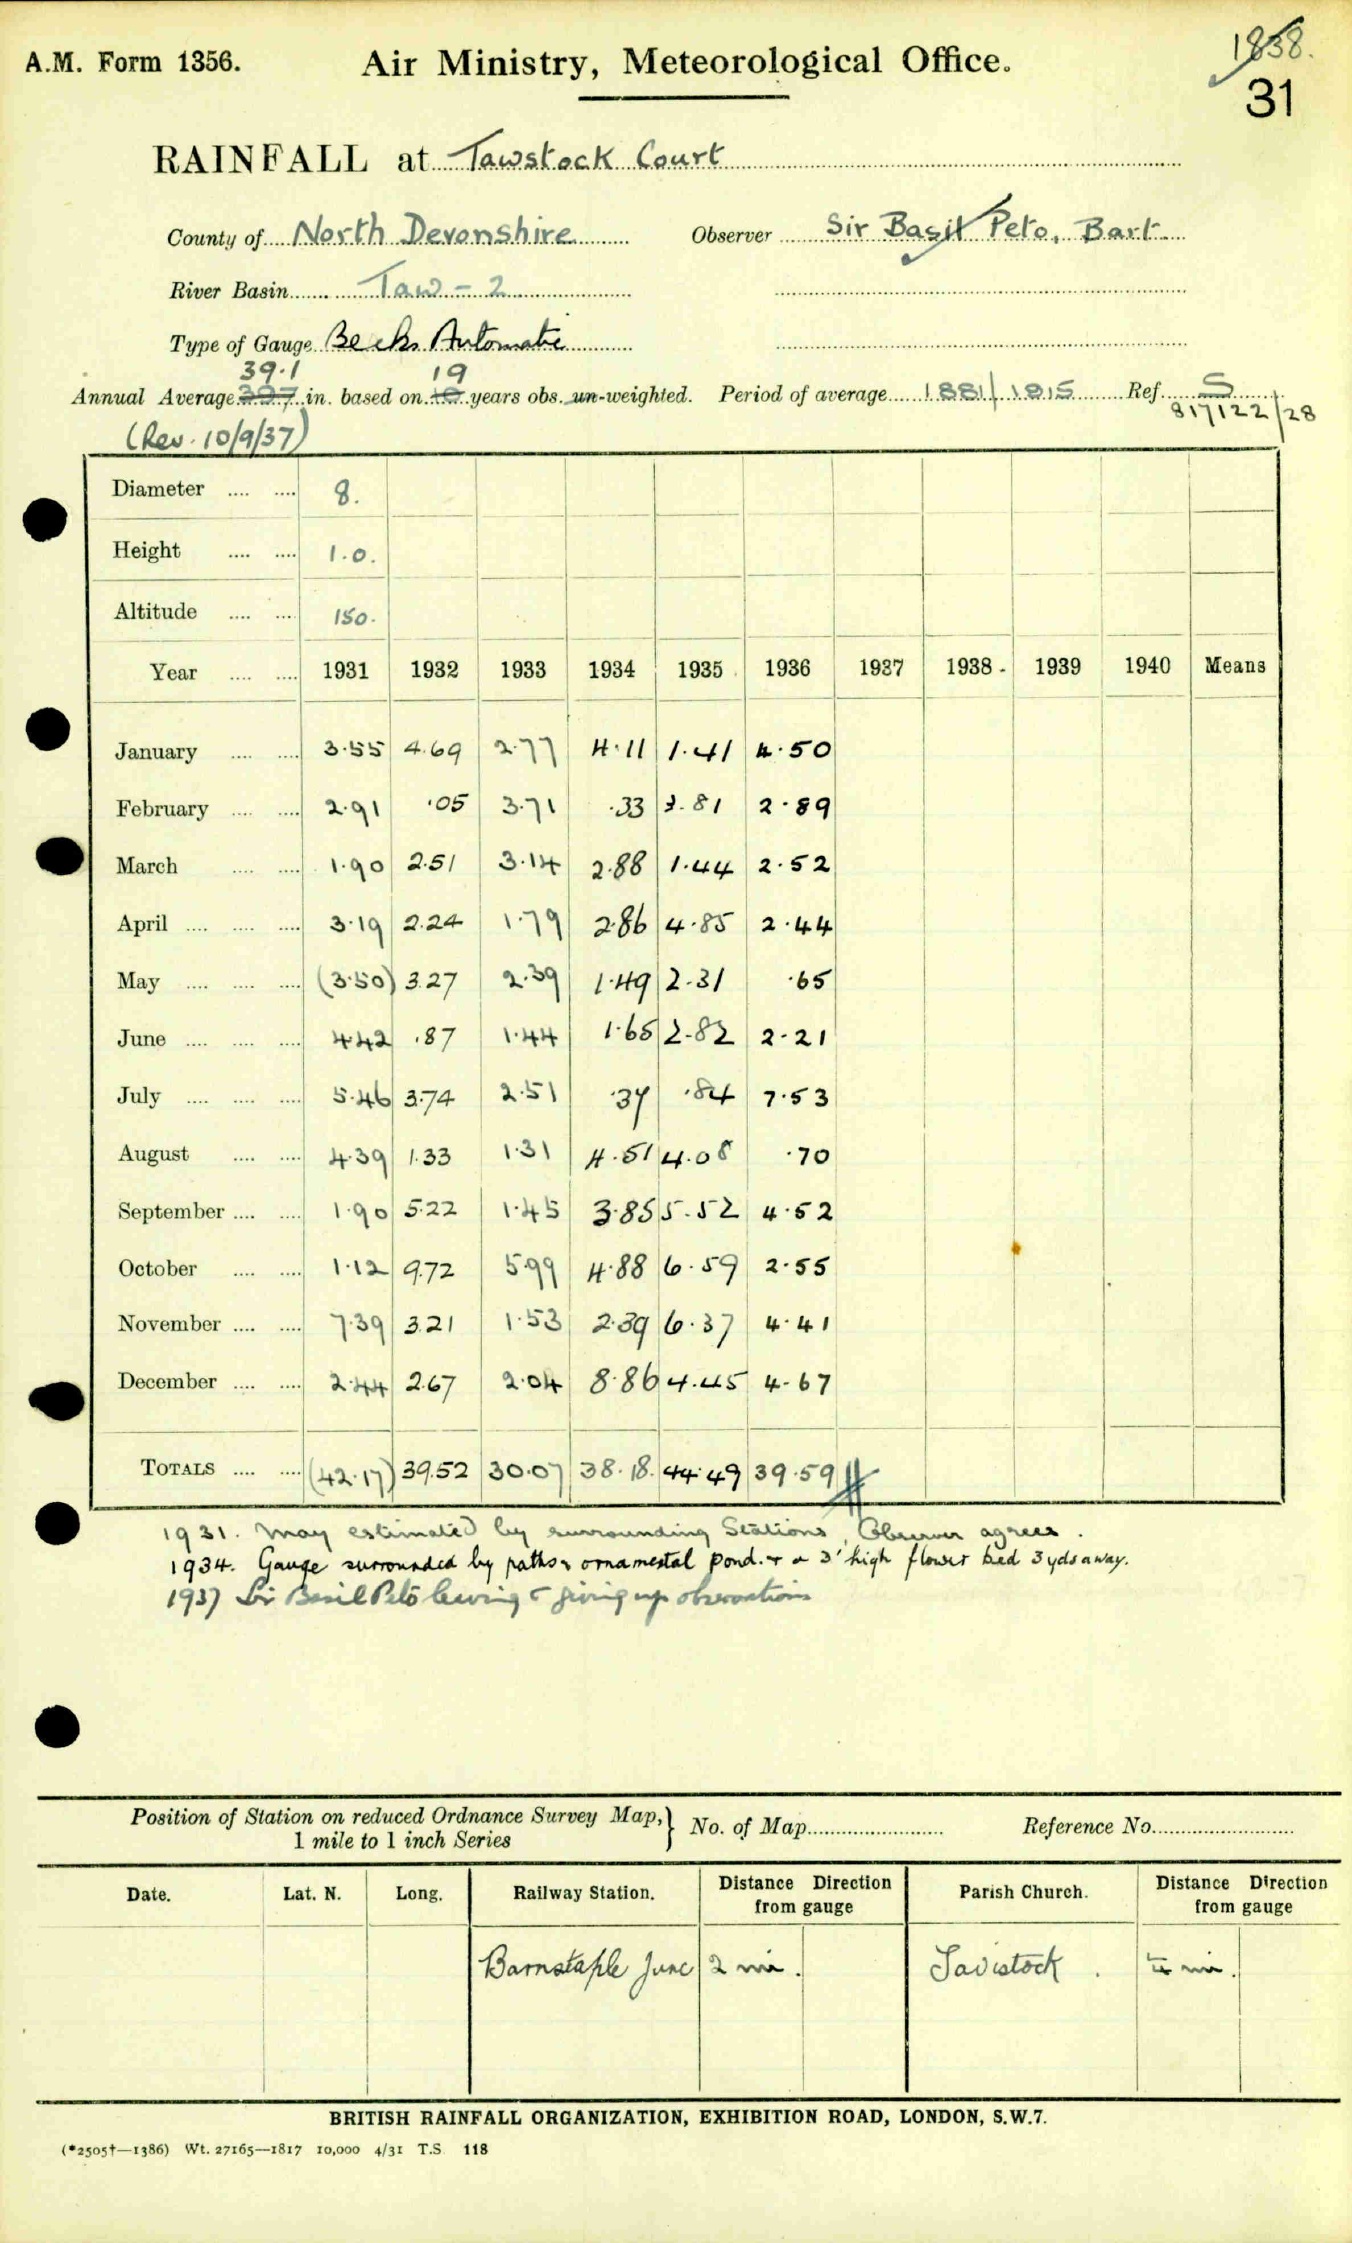 A.M. Form 1356. Air Ministry, Meteorological Office. 1838.
31
RAINFALL at Tawstock Court
County of North Devonshire Observer Sir Basil Peto, Bart
River Basin Taw - 2
Type of Gauge Becks Automatic
39.1 19
Annual Average 39.7 in. based on 10 years obs. un-weighted. Period of average 1881/1915 Ref. S
(Rev. 10/9/37) 817122/28
Diameter .... .... 8.
Height .... .... 1.0.
Altitude .... .... 150.
Year .... .... 1931 1932 1933 1934 1935 1936 1937 1938 1939 1940 Means
January .... .... 3.55 4.69 2.77 4.11 1.41 4.50
February .... .... 2.91 .05 3.71 .33 3.81 2.89
March .... .... 1.90 2.51 3.14 2.88 1.44 2.52
April .... .... .... 3.19 2.24 1.79 2.86 4.85 2.44
May .... .... .... (3.50) 3.27 2.39 1.49 2.31 .65
June .... .... .... 4.42 .87 1.44 1.65 2.82 2.21
July .... .... .... 5.46 3.74 2.51 .37 .84 7.53
August .... .... 4.39 1.33 1.31 4.51 4.08 .70
September .... .... 1.90 5.22 1.45 3.85 5.52 4.52
October .... .... 1.12 9.72 5.99 4.88 6.59 2.55
November .... .... 7.39 3.21 1.53 2.39 6.37 4.41
December .... .... 2.44 2.67 2.04 8.86 4.45 4.67
TOTALS .... .... (42.17) 39.52 30.07 38.18. 44.49 39.59
1931. May estimated by surrounding Stations, Observer agrees.
1934. Gauge surrounded by paths & ornamental pond. + a 3' high flower bed 3 yds away.
1937 Sir Basil Peto leaving & giving up observations
Position of Station on reduced Ordnance Survey Map,} No. of Map Reference No.
1 mile to 1 inch Series
Date. Lat. N. Long. Railway Station. Distance Direction from gauge Parish Church. Distance Direction from gauge
Barnstaple Junc 2 mi. Tavistock. ¼ mi.
BRITISH RAINFALL ORGANIZATION, EXHIBITION ROAD, LONDON, S.W.7.
(*2505†—1386) Wt. 27165—1817 10,000 4/31 T.S. 118